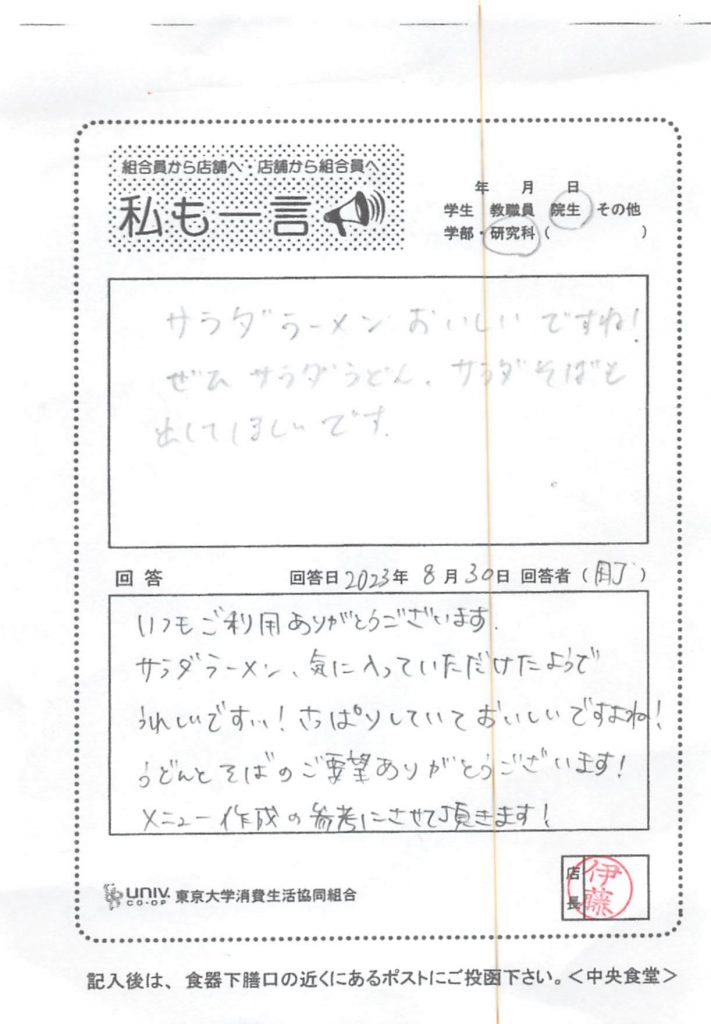 組合員から店舗へ・店舗から組合員へ
私も一言
年 月 日
学生 教職員 院生 その他
学部・研究科( )
サラダラーメン おいしいですね!
ぜひ サラダうどん、サラダそばも
出してほしいです.
回答 回答日 2023年 8月 30日 回答者( )
いつもご利用ありがとうございます.
サラダラーメン、気に入っていただけたようで
うれしいですぃ!さっぱりしていて おいしいですよね!
うどんとそばのご要望ありがとうございます!
メニュー作成の参考にさせて頂きます!
UNIV. CO-OP 東京大学消費生活協同組合
店長 伊藤
記入後は、食器下膳口の近くにあるポストにご投函下さい。<中央食堂>